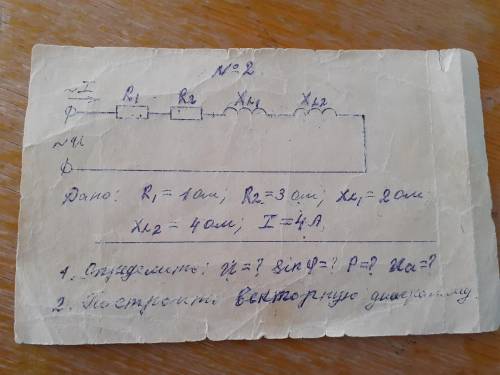 № 2
~I R1 R2 XL1 XL2
~U
Дано: R1 = 1 ом; R2 = 3 ом; XL1 = 2 ом
XL2 = 4 ом; I = 4 А
1. Определить: U=? Sin φ=? P=? Uа=?
2. Построить векторную диаграмму.